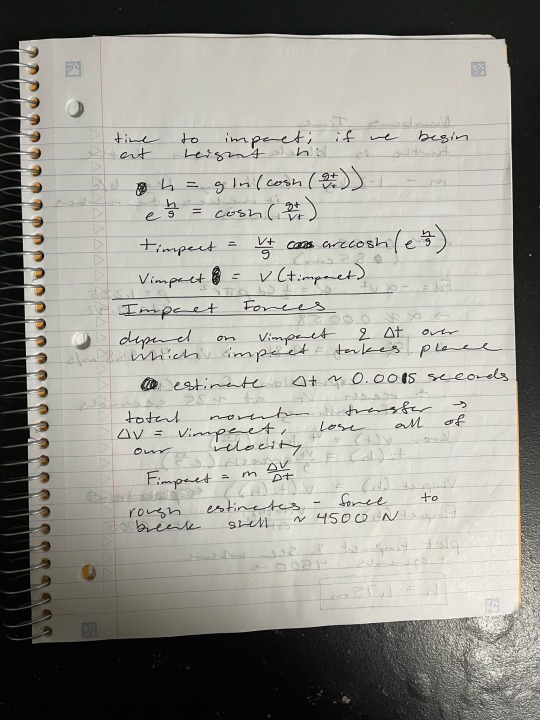 time to impact; if we begin
at height h:
h = g ln(cosh(gt/vt))
e^(h/g) = cosh(gt/vt)
timpact = vt/g arccosh(e^(h/g))
vimpact = v(timpact)
Impact Forces
depend on vimpact & Δt over
which impact takes place
estimate Δt ~ 0.0015 seconds
total momentum transfer →
Δv = vimpact, lose all of
our velocity
Fimpact = m Δv/Δt
rough estimates - force to
break shell ~ 4500 N